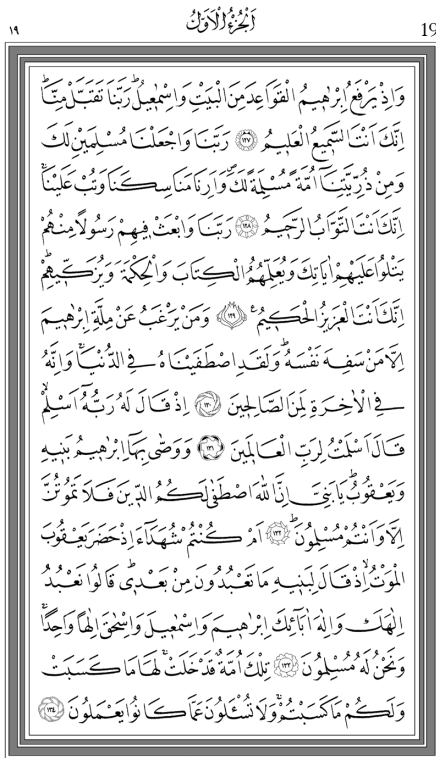 ١٩
اَلْجُزْءُ الْاَوَّلُ
19
وَاِذْ يَرْفَعُ اِبْرٰه۪يمُ الْقَوَاعِدَ مِنَ الْبَيْتِ وَاِسْمٰع۪يلُۜ رَبَّنَا تَقَبَّلْ مِنَّاۜ
اِنَّكَ اَنْتَ السَّم۪يعُ الْعَل۪يمُ ﴿١٢٧﴾ رَبَّنَا وَاجْعَلْنَا مُسْلِمَيْنِ لَكَ
وَمِنْ ذُرِّيَّتِنَٓا اُمَّةً مُسْلِمَةً لَكَۖ وَاَرِنَا مَنَاسِكَنَا وَتُبْ عَلَيْنَاۚ
اِنَّكَ اَنْتَ التَّوَّابُ الرَّح۪يمُ ﴿١٢٨﴾ رَبَّنَا وَابْعَثْ ف۪يهِمْ رَسُولاً مِنْهُمْ
يَتْلُوا عَلَيْهِمْ اٰيَاتِكَ وَيُعَلِّمُهُمُ الْكِتَابَ وَالْحِكْمَةَ وَيُزَكّ۪يهِمْۜ
اِنَّكَ اَنْتَ الْعَز۪يزُ الْحَك۪يمُ۟ ﴿١٢٩﴾ وَمَنْ يَرْغَبُ عَنْ مِلَّةِ اِبْرٰه۪يمَ
اِلَّا مَنْ سَفِهَ نَفْسَهُۜ وَلَقَدِ اصْطَفَيْنَاهُ فِي الدُّنْيَاۚ وَاِنَّهُ
فِي الْاٰخِرَةِ لَمِنَ الصَّالِح۪ينَ ﴿١٣٠﴾ اِذْ قَالَ لَهُ رَبُّهُٓ اَسْلِمْۙ
قَالَ اَسْلَمْتُ لِرَبِّ الْعَالَم۪ينَ ﴿١٣١﴾ وَوَصّٰى بِهَٓا اِبْرٰه۪يمُ بَن۪يهِ
وَيَعْقُوبُۜ يَا بَنِيَّ اِنَّ اللّٰهَ اصْطَفٰى لَكُمُ الدّ۪ينَ فَلَا تَمُوتُنَّ
اِلَّا وَاَنْتُمْ مُسْلِمُونَۜ ﴿١٣٢﴾ اَمْ كُنْتُمْ شُهَدَٓاءَ اِذْ حَضَرَ يَعْقُوبَ
الْمَوْتُۙ اِذْ قَالَ لِبَن۪يهِ مَا تَعْبُدُونَ مِنْ بَعْد۪يۜ قَالُوا نَعْبُدُ
اِلٰهَكَ وَاِلٰهَ اٰبَٓائِكَ اِبْرٰه۪يمَ وَاِسْمٰع۪يلَ وَاِسْحٰقَ اِلٰهًا وَاحِدًاۚ
وَنَحْنُ لَهُ مُسْلِمُونَ ﴿١٣٣﴾ تِلْكَ اُمَّةٌ قَدْ خَلَتْۚ لَهَا مَا كَسَبَتْ
وَلَكُمْ مَا كَسَبْتُمْۚ وَلَا تُسْـَٔلُونَ عَمَّا كَانُوا يَعْمَلُونَ ﴿١٣٤﴾